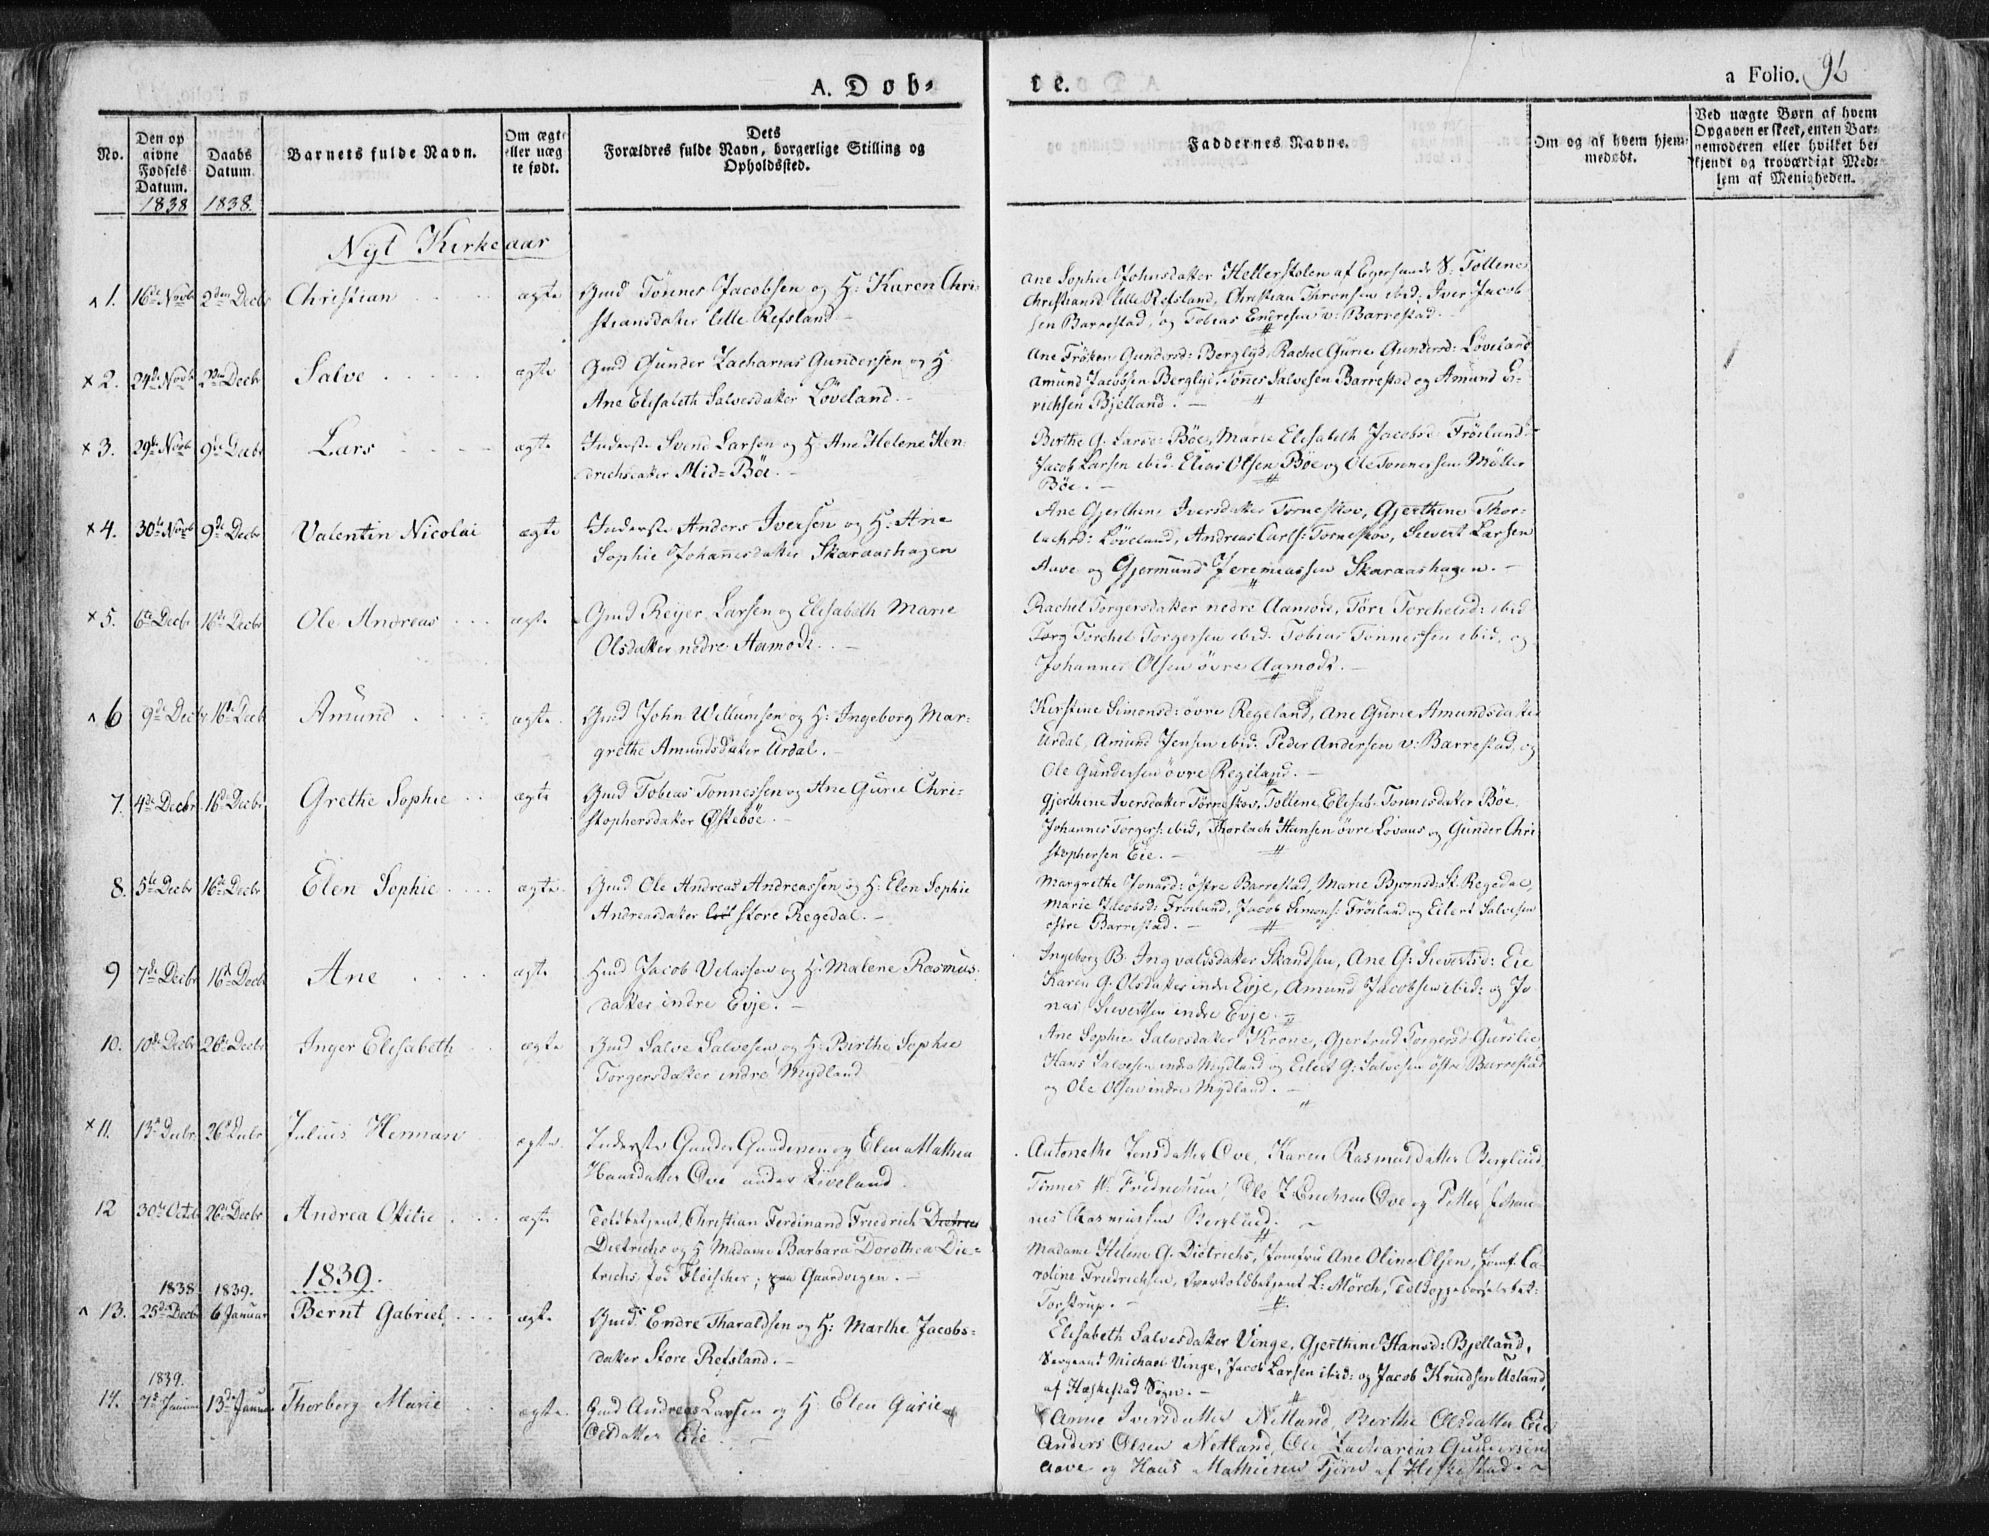 A. Døb-
re.
a Folio. 96
No.
Den op
givne
Fødsels
Datum.
1838
Daabs
Datum.
1838.
Barnets fulde Navn.
Om ægte
eller uæg
te født.
Dets
Forældres fulde Navn, borgerlige Stilling og
Opholdssted.
Faddernes Navne.
Om og af hvem hjem-
medøbt.
Ved uægte Børn af hvem
Opgaven er skeet, enten Bar-
nemoderen eller hvilket be-
kjendt og troværdigt Med-
lem af Menigheden.
Nyt Kirkeaar
1. 16de Novb 2den Decbr Christian ægte Gmd Tönnes Jacobsen og H: Karen Chri-
stiansdatter lille Refsland
Ane Sophie Johnsdatter Hellerstolen af Egersunds S: Tollene
Christiansd lille Refsland, Christian Thronsen ibid; Iver Jacob
sen Barrestad, og Tobias Endresen v: Barrestad.
× 2. 24de Novb 2den Decbr Salve ægte Gmd Gunder Zacharias Gundersen og H.
Ane Elisabeth Salvesdatter Löveland.
Ane Fröken Gundersd: Berglyd, Rachel Gurie Gundersd: Löveland
Amund Jacobsen Berglyd, Tönnes Salvesen Barrestad og Amund E-
richsen Bjelland.
× 3. 29de Novb 9de Decbr Lars ægte Inderste Svend Larsen og H. Ane Helene Hen-
drichsdatter Mid-Böe.
Berthe G. Larse: Böe, Marie Elisabeth Jacobsd: Fröiland
Jacob Larsen ibid. Elias Olsen Böe og Ole Tönnesen Möller
Böe.
× 4. 30te Novb 9de Decbr Valentin Nicolai ægte Inderste Anders Iversen og H: Ane
Sophie Johannesdatter Skaraashagen
Ane Gjerthine Iversdatter Torneskov, Gjerthine Thor-
lachsd: Löveland, Andreas Carls: Torneskov, Sievert Larsen
Aave og Gjermund Jeremiassen Skaraashagen.
× 5. 6te Decbr 16de Decbr Ole Andreas ægte Gmd Reyer Larsen og Elisabeth Marie
Olsdatter nedre Aamodt.
Rachel Torgersdatter nedre Aamodt, Töri Torchelsd: ibid
Torg Torchel Torgersen ibid. Tobias Tönnessen ibid, og
Johannes Olsen övre Aamodt.
6 9de Decbr 16de Decb Amund ægte Gmd John Willumsen og H: Ingeborg Mar-
grethe Amundsdatter Urdal.
Kirstine Simonsd: övre Regeland, Ane Gurie Amundsdatter
Urdal, Amund Jensen ibid. Peder Andersen v: Barrestad, og
Ole Gundersen övre Regeland.
7. 4de Decbr 16de Decbr Grethe Sophie ægte Gmd Tobias Tonnessen og Ane Gurie Chri-
stophersdatter Østeböe.
Gjerthine Iversdatter Torneskov, Tollene Elisab. Tonnesdatter Böe,
Johannes Torgers: ibid, Thorlach Hansen övre Lovaas og Gunder Chri
stophersen Eie.
8. 5te Decbr 16de Decbr Elen Sophie ægte Gmd Ole Andreas Andreassen og H: Elen Sophie
Andreasdatter store Regedal.
Margrethe Jonasd: östre Barrestad, Marie Bjornsd: St. Regedal,
Marie Jacobsd: Fröiland, Jacob Simons: Fröiland og Eilert Salvesen
östre Barrestad.
9 7de Decbr 16de Decbr Ane ægte Hmd Jacob Villassen og H. Malene Rasmus
datter indre Evje.
Ingeborg B. Ingvaldsdatter Skandsen, Ane G: Sievertsd: Eie
Karen G. Olsdatter indre Evje, Amund Jacobsen ibid: og Jo
nas Sievertsen indre Evje.
10. 10de Decbr 26de Decbr Inger Elisabeth ægte Gmd Salve Salvesen og H: Birthe Sophie
Torgersdatter indre Mydland
Ane Sophie Salvesdatter Krone, Gjertrud Torgersd Gurslie,
Hans Salvesen indre Mydland og Eilert G: Salvesen östre Barrestad
og Ole Olsen indre Mydland.
× 11. 13de Decbr. 26de Decbr Julius Herman ægte. Inderste Gunder Gundersen og Elen Mathea
Hansdatter Ove under Löveland.
Antonette Jensdatter Ove, Karen Rasmusdatter Berglund,
Tönnes W. Fredrichsen, Ole Z. Erichsen Ove og Petter Johan-
nes Rasmussen Berglund.
12 30te Octbr 26de Decbr Andrea Otitie ægte Toldbetjent, Christian Ferdinand Friedrich Dietrich
Dietrichs og H Madame Barbara Dorothea Die-
trichs föd Fleischer; paa Gaardvegen.
Madame Helene G. Dietrichs, Jomfru Ane Oline Olsen, Jomf. Ca-
roline Friedrichsen, Overtoldbetjent L: Mörch, Toldoppebörselsbet:
Torstrup.
1839.
1838 1839.
13. 25de Decbr 6 Januar Bernt Gabriel ægte Gmd: Endre Tharaldsen og H: Marthe Jacobs-
datter Store Refsland.
Elisabeth Salvesdatter Vinge, Gjerthine Hansd: Bjelland,
Sergeant Michael Vinge, Jacob Larsen ibid: og Jacob Knudsen Ueland,
af Heskestad Sogn.
1839.
14. 7de Januar 13de Januar Thorborg Marie ægte. Gmd Andreas Larsen og H. Elen Gurie
Olsdatter Eie.
Anne Iversdatter Netland, Berthe Olsdatter Eie
Anders Olsen Netland, Ole Zacharias Gundersen
Aave og Hans Mathiesen Tjörn af Heskestad.